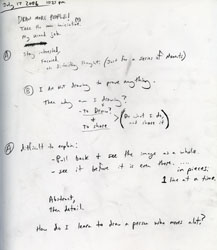 July 17 2006 10:21 pm
DRAW MORE PEOPLE!
Take the
My job
Stay interested,
focused
on Drawing (just for a series of)
I do not drawing to prove anything.
Then why am I drawing?
- To Draw?
&
To share
(Do what I do, and share it)
difficult to explain:
- Pull back & see the image as a whole.
- see it before it is even there, ....
in pieces;
1 line at a time.
Abstract,
then detail.
How do I learn to draw a person who moves alot?